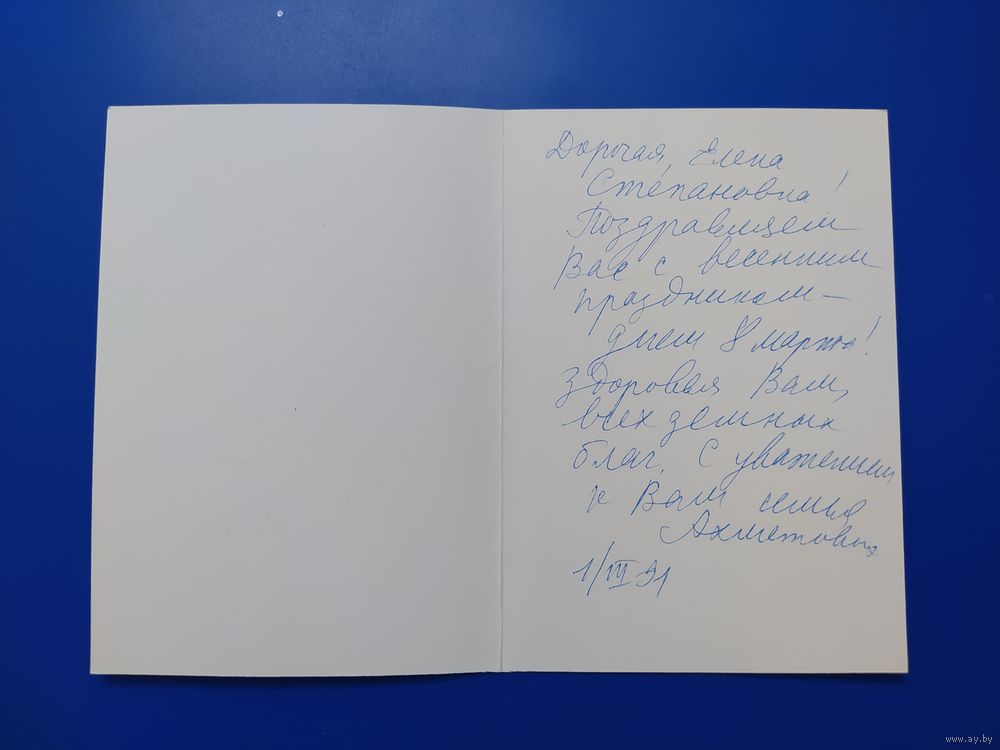 Дорогая, Елена
Степановна!
Поздравляем
Вас с весенним
праздником —
днем 8 марта!
Здоровья Вам,
всех земных
благ. С уважением
к Вам семья
Ахметовых
1/III 91
www.ay.by